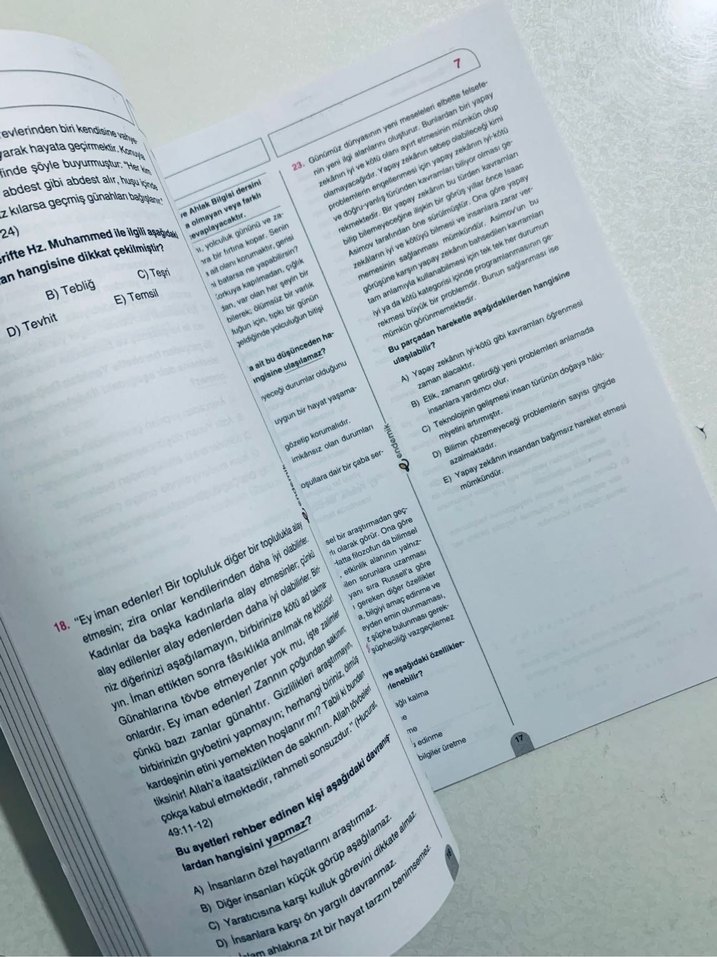 revlerinden biri kendisine vahye-
yarak hayata geçirmektir. Konuyla
finde şöyle buyurmuştur: "Her kim
abdest gibi abdest alır, huşu içinde
z kılarsa geçmiş günahları bağışlanır."
24)
erifte Hz. Muhammed ile ilgili aşağıdaki
an hangisine dikkat çekilmiştir?
B) Tebliğ
C) Teşri
D) Tevhit
E) Temsil
18. "Ey iman edenler! Bir topluluk diğer bir toplulukla alay
etmesin; zira onlar kendilerinden daha iyi olabilirler.
Kadınlar da başka kadınlarla alay etmesinler; çünkü
alay edilenler alay edenlerden daha iyi olabilirler. Biri-
niz diğerinizi aşağılamayın, birbirinize kötü ad takma-
yın. İman ettikten sonra fâsıklıkla anılmak ne kötüdür!
Günahlarına tövbe etmeyenler yok mu, işte zalimler
onlardır. Ey iman edenler! Zannın çoğundan sakının;
çünkü bazı zanlar günahtır. Gizlilikleri araştırmayın,
birbirinizin gıybetini yapmayın; herhangi biriniz, ölmüş
kardeşinin etini yemekten hoşlanır mı? Tabii ki bundan
tiksinir! Allah'a itaatsizlikten de sakının. Allah tövbeleri
çokça kabul etmektedir, rahmeti sonsuzdur." (Hucurat,
49:11-12)
Bu ayetleri rehber edinen kişi aşağıdaki davranış-
lardan hangisini yapmaz?
A) İnsanların özel hayatlarını araştırmaz.
B) Diğer insanları küçük görüp aşağılamaz.
C) Yaratıcısına karşı kulluk görevini dikkate almaz.
D) İnsanlara karşı ön yargılı davranmaz.
İslam ahlakına zıt bir hayat tarzını benimsemez
ve Ahlak Bilgisi dersini
a olmayan veya farklı
cevaplayacaktır.
yolculuk gününü ve za-
bir fırtına kopar. Senin
ait olanı korumaktır, gerisi
batarsa ne yapabilirsin?
korkuya kapılmadan, çığlık
dan, var olan her şeyin bir
bilerek; ölümsüz bir varlık
luğun için, tıpkı bir günün
geldiğinde yolculuğun bitişi
a ait bu düşünceden ha-
ngisine ulaşılamaz?
yeceği durumlar olduğunu
uygun bir hayat yaşama-
gözetip korumalıdır.
imkânsız olan durumları
oşullara dair bir çaba ser-
sel bir araştırmadan geç-
tı olarak görür. Ona göre
atta filozofun da bilimsel
etkinlik alanının yalnız-
lan sorunlara uzanması
yanı sıra Russell'a göre
gereken diğer özellikler
a, bilgiyi amaç edinme ve
eyden emin olunmaması,
şüphe bulunması gerek-
şüpheciliği vazgeçilemez
ye aşağıdaki özellikler-
lenebilir?
ağlı kalma
me
edinme
bilgiler üretme
endemik
7
23. Günümüz dünyasının yeni meseleleri elbette felsefe-
nin yeni ilgi alanlarını oluşturur. Bunlardan biri yapay
zekânın iyi ve kötü olanı ayırt etmesinin mümkün olup
olamayacağıdır. Yapay zekânın sebep olabileceği kimi
problemlerin engellenmesi için yapay zekânın iyi-kötü
ve doğru-yanlış türünden kavramları biliyor olması ge-
rekmektedir. Bir yapay zekânın bu türden kavramları
bilip bilemeyeceğine ilişkin bir görüş yıllar önce Isaac
Asimov tarafından öne sürülmüştür. Ona göre yapay
zekâların iyi ve kötüyü bilmesi ve insanlara zarar ver-
memesinin sağlanması mümkündür. Asimov'un bu
görüşüne karşın yapay zekânın bahsedilen kavramları
tam anlamıyla kullanabilmesi için tek tek her durumun
iyi ya da kötü kategorisi içinde programlanmasının ge-
rekmesi büyük bir problemdir. Bunun sağlanması ise
mümkün görünmemektedir.
Bu parçadan hareketle aşağıdakilerden hangisine
ulaşılabilir?
A) Yapay zekânın iyi-kötü gibi kavramları öğrenmesi
zaman alacaktır.
B) Etik, zamanın getirdiği yeni problemleri anlamada
insanlara yardımcı olur.
C) Teknolojinin gelişmesi insan türünün doğaya hâki-
miyetini artırmıştır.
D) Bilimin çözemeyeceği problemlerin sayısı gitgide
azalmaktadır.
E) Yapay zekânın insandan bağımsız hareket etmesi
mümkündür.
17